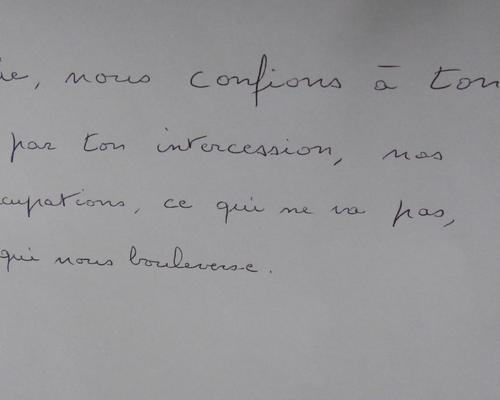 ie, nous confions à ton
par ton intercession, nos
cupations, ce qui ne va pas,
qui nous bouleverse.